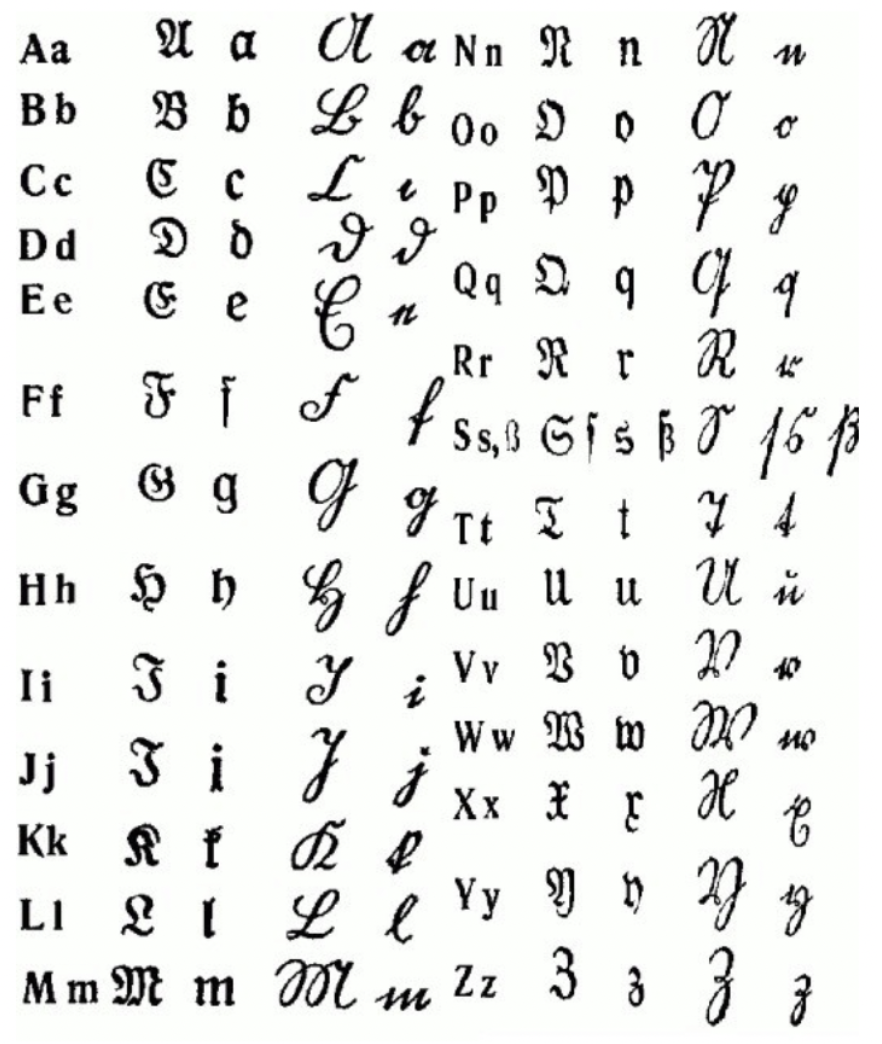 Aa 𝕬 𝖆 A a
Bb 𝕭 𝖇 B b
Cc 𝕮 𝖈 C c
Dd 𝕯 𝖉 D d
Ee 𝕰 𝖊 E e
Ff 𝕱 𝖋 F f
Gg 𝕲 𝖌 G g
Hh 𝕳 𝖍 H h
Ii 𝕴 𝖎 I i
Jj 𝕴 𝖎 J j
Kk 𝕶 𝖐 K k
Ll 𝕷 𝖑 L l
Mm 𝕸 𝖒 M m
Nn 𝕹 𝖓 N n
Oo 𝕺 𝖔 O o
Pp 𝕻 𝖕 P p
Qq 𝕼 𝖖 Q q
Rr 𝕽 𝖗 R r
Ss,ß 𝕾 ſ 𝖘 ß S ſ s ß
Tt 𝕿 𝖙 T t
Uu 𝖀 𝖚 U u
Vv 𝖁 𝖛 V v
Ww 𝖂 𝖜 W w
Xx 𝖃 𝖝 X x
Yy 𝖄 𝖞 Y y
Zz 𝖅 𝖟 Z z